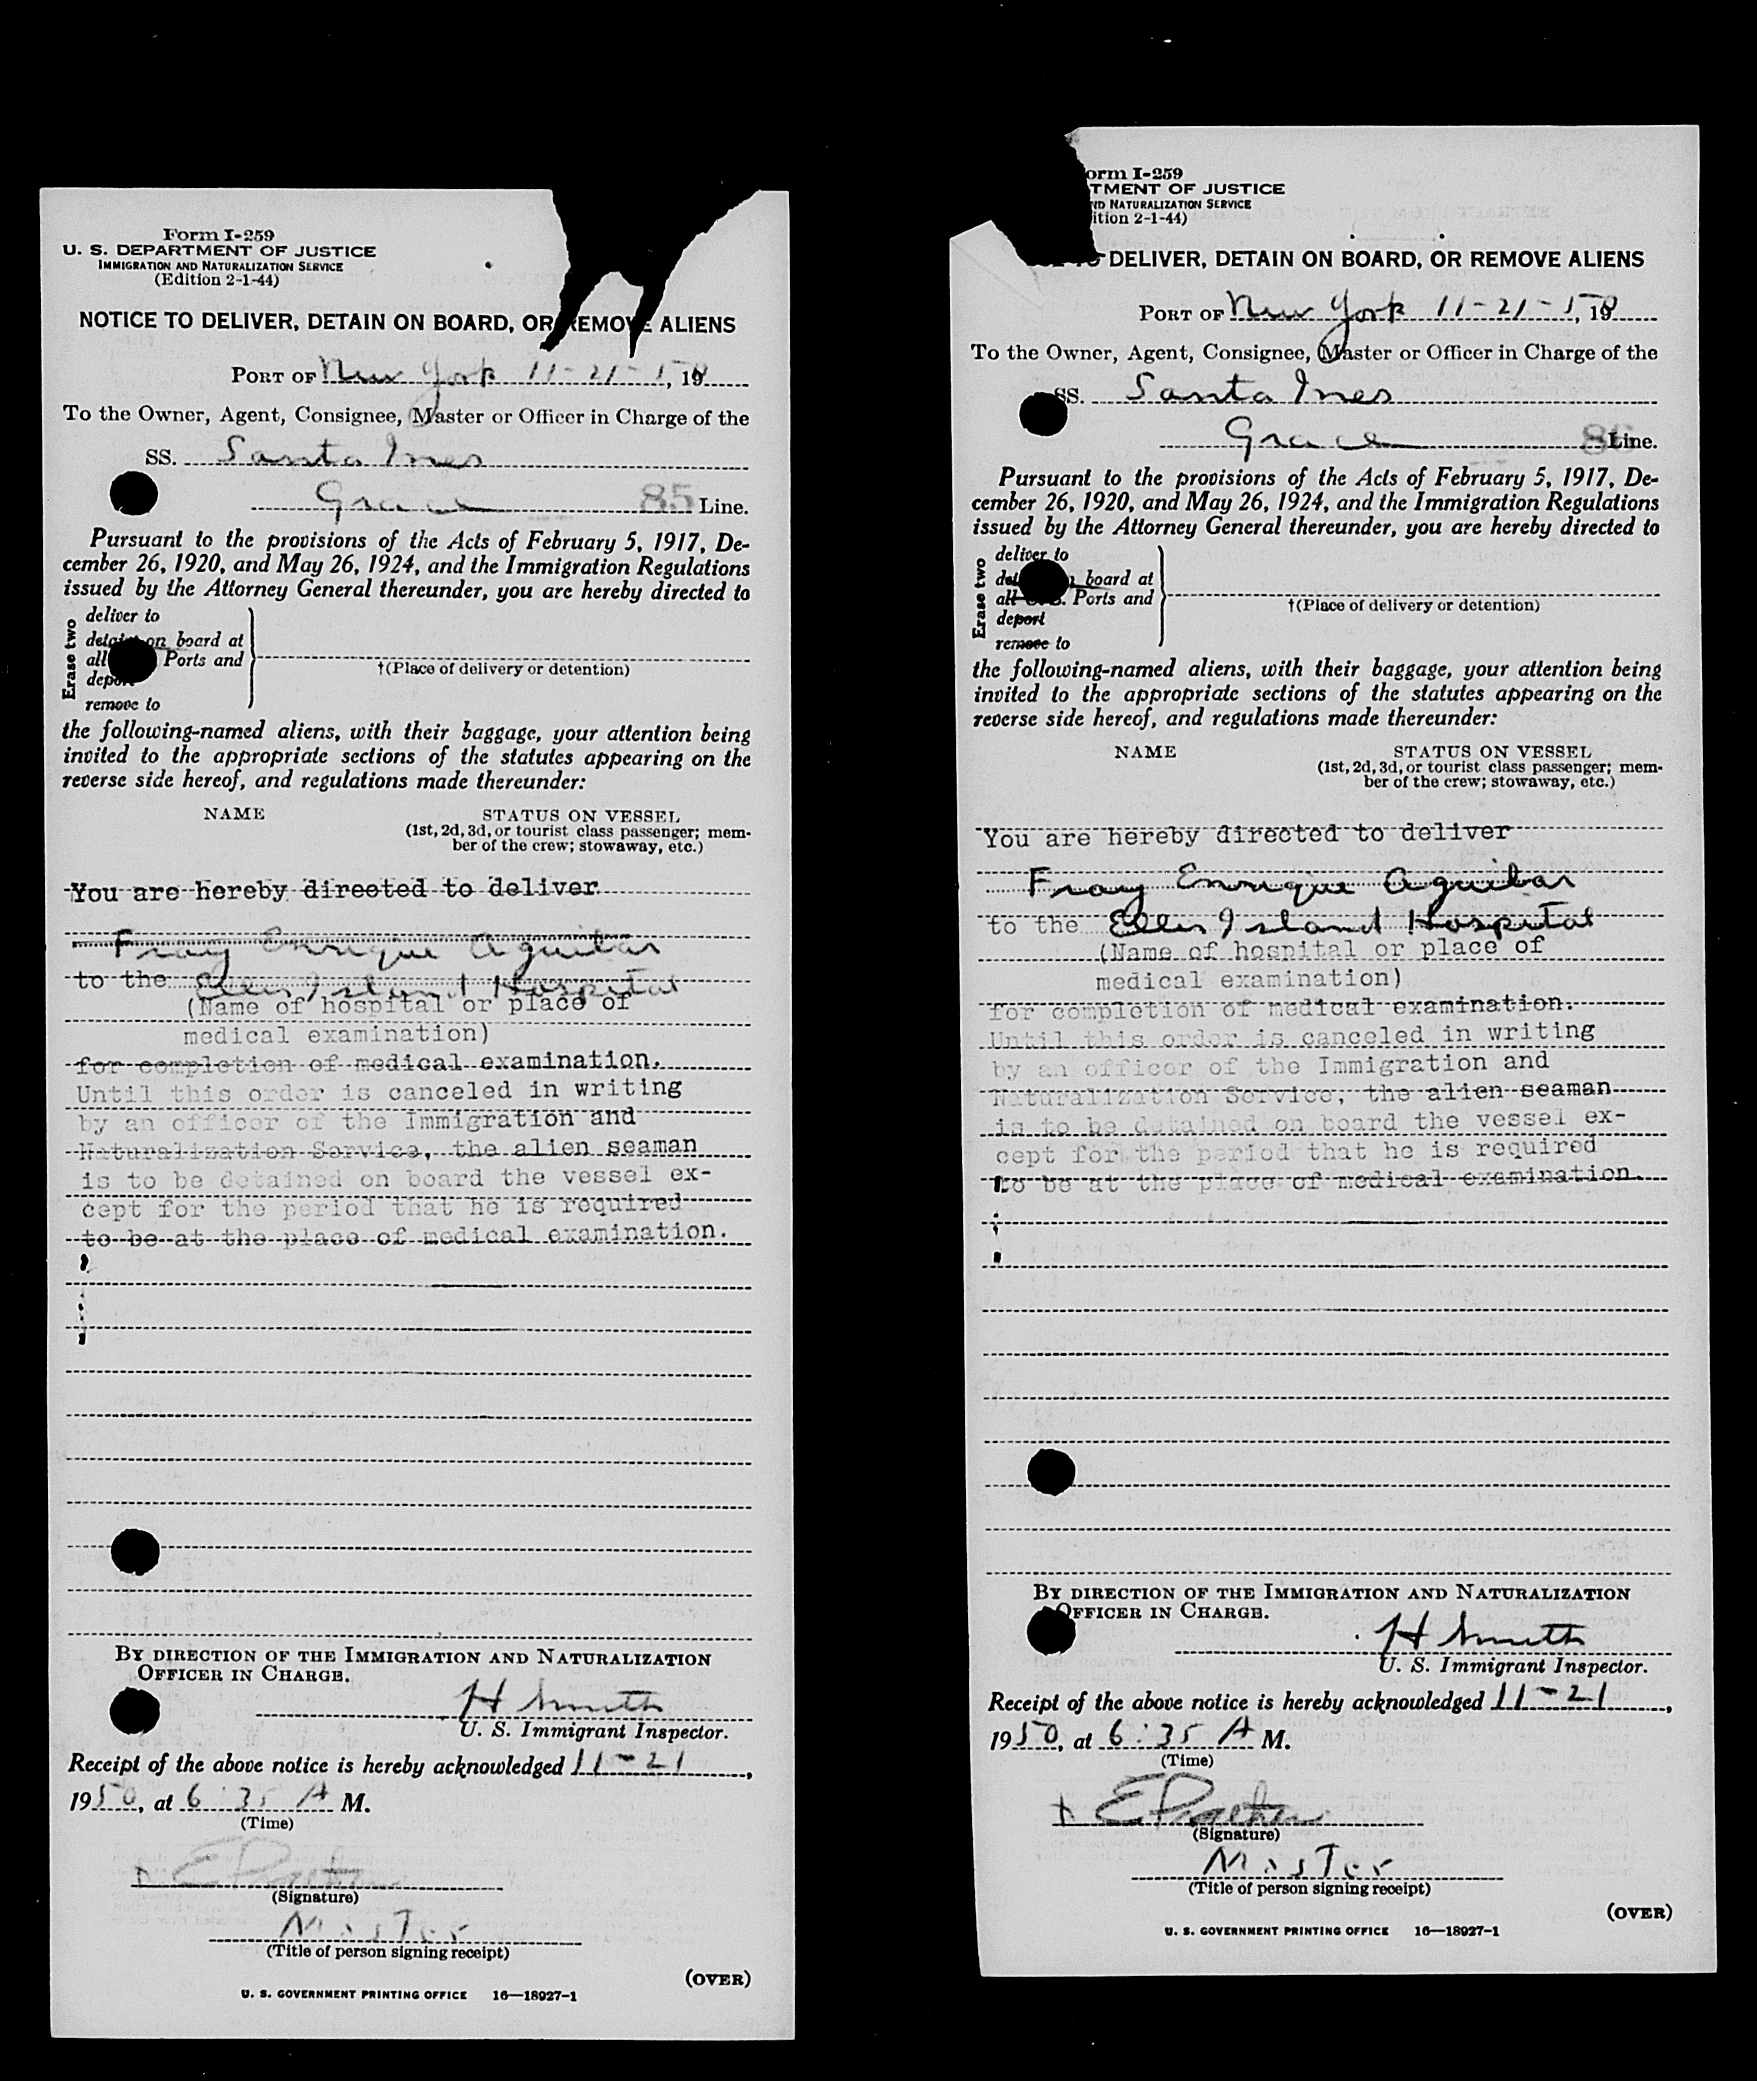 Form I-259
U. S. DEPARTMENT OF JUSTICE
IMMIGRATION AND NATURALIZATION SERVICE
(Edition 2-1-44)
NOTICE TO DELIVER, DETAIN ON BOARD, OR REMOVE ALIENS
PORT OF New York 11-21-50, 19
To the Owner, Agent, Consignee, Master or Officer in Charge of the
SS. Santa Ines
Grace 85 Line.
Pursuant to the provisions of the Acts of February 5, 1917, De-
cember 26, 1920, and May 26, 1924, and the Immigration Regulations
issued by the Attorney General thereunder, you are hereby directed to
Erase two
deliver to
detain on board at
all Ports and
deport
remove to
†(Place of delivery or detention)
the following-named aliens, with their baggage, your attention being
invited to the appropriate sections of the statutes appearing on the
reverse side hereof, and regulations made thereunder:
NAME STATUS ON VESSEL
(1st, 2d, 3d, or tourist class passenger; mem-
ber of the crew; stowaway, etc.)
You are hereby directed to deliver
Fray Enrique Aguilar
to the Ellis Island Hospital
(Name of hospital or place of
medical examination)
for completion of medical examination.
Until this order is canceled in writing
by an officer of the Immigration and
Naturalization Service, the alien seaman
is to be detained on board the vessel ex-
cept for the period that he is required
to be at the place of medical examination.
BY DIRECTION OF THE IMMIGRATION AND NATURALIZATION
OFFICER IN CHARGE.
H Smith
U. S. Immigrant Inspector.
Receipt of the above notice is hereby acknowledged 11-21,
1950, at 6:35 A M.
(Time)
(Signature)
Master
(Title of person signing receipt)
(OVER)
U. S. GOVERNMENT PRINTING OFFICE 16—18927-1
orm I-259
TMENT OF JUSTICE
ND NATURALIZATION SERVICE
ition 2-1-44)
DELIVER, DETAIN ON BOARD, OR REMOVE ALIENS
PORT OF New York 11-21-50, 19
To the Owner, Agent, Consignee, Master or Officer in Charge of the
SS. Santa Ines
Grace 86 Line.
Pursuant to the provisions of the Acts of February 5, 1917, De-
cember 26, 1920, and May 26, 1924, and the Immigration Regulations
issued by the Attorney General thereunder, you are hereby directed to
Erase two
deliver to
board at
all Ports and
deport
remove to
†(Place of delivery or detention)
the following-named aliens, with their baggage, your attention being
invited to the appropriate sections of the statutes appearing on the
reverse side hereof, and regulations made thereunder:
NAME STATUS ON VESSEL
(1st, 2d, 3d, or tourist class passenger; mem-
ber of the crew; stowaway, etc.)
You are hereby directed to deliver
Fray Enrique Aguilar
to the Ellis Island Hospital
(Name of hospital or place of
medical examination)
for completion of medical examination.
Until this order is canceled in writing
by an officer of the Immigration and
Naturalization Service, the alien seaman
is to be detained on board the vessel ex-
cept for the period that he is required
to be at the place of medical examination.
BY DIRECTION OF THE IMMIGRATION AND NATURALIZATION
OFFICER IN CHARGE.
H Smith
U. S. Immigrant Inspector.
Receipt of the above notice is hereby acknowledged 11-21,
1950, at 6:35 A M.
(Time)
(Signature)
Master
(Title of person signing receipt)
(OVER)
U. S. GOVERNMENT PRINTING OFFICE 16—18927-1